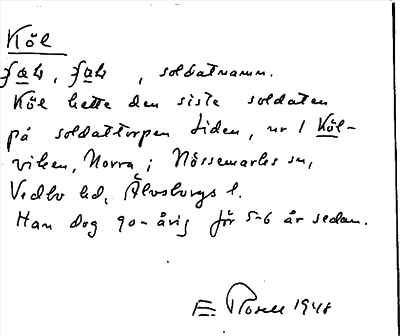 Köl
, soldatnamn.
Köl hette den siste soldaten
på soldattorpet Liden, nr 1 Köl-
viken, Norra, i Nössemarks sn,
Vedbo hd, Älvsborgs l.
Han dog 90-årig för 5-6 år sedan.
E. 1948